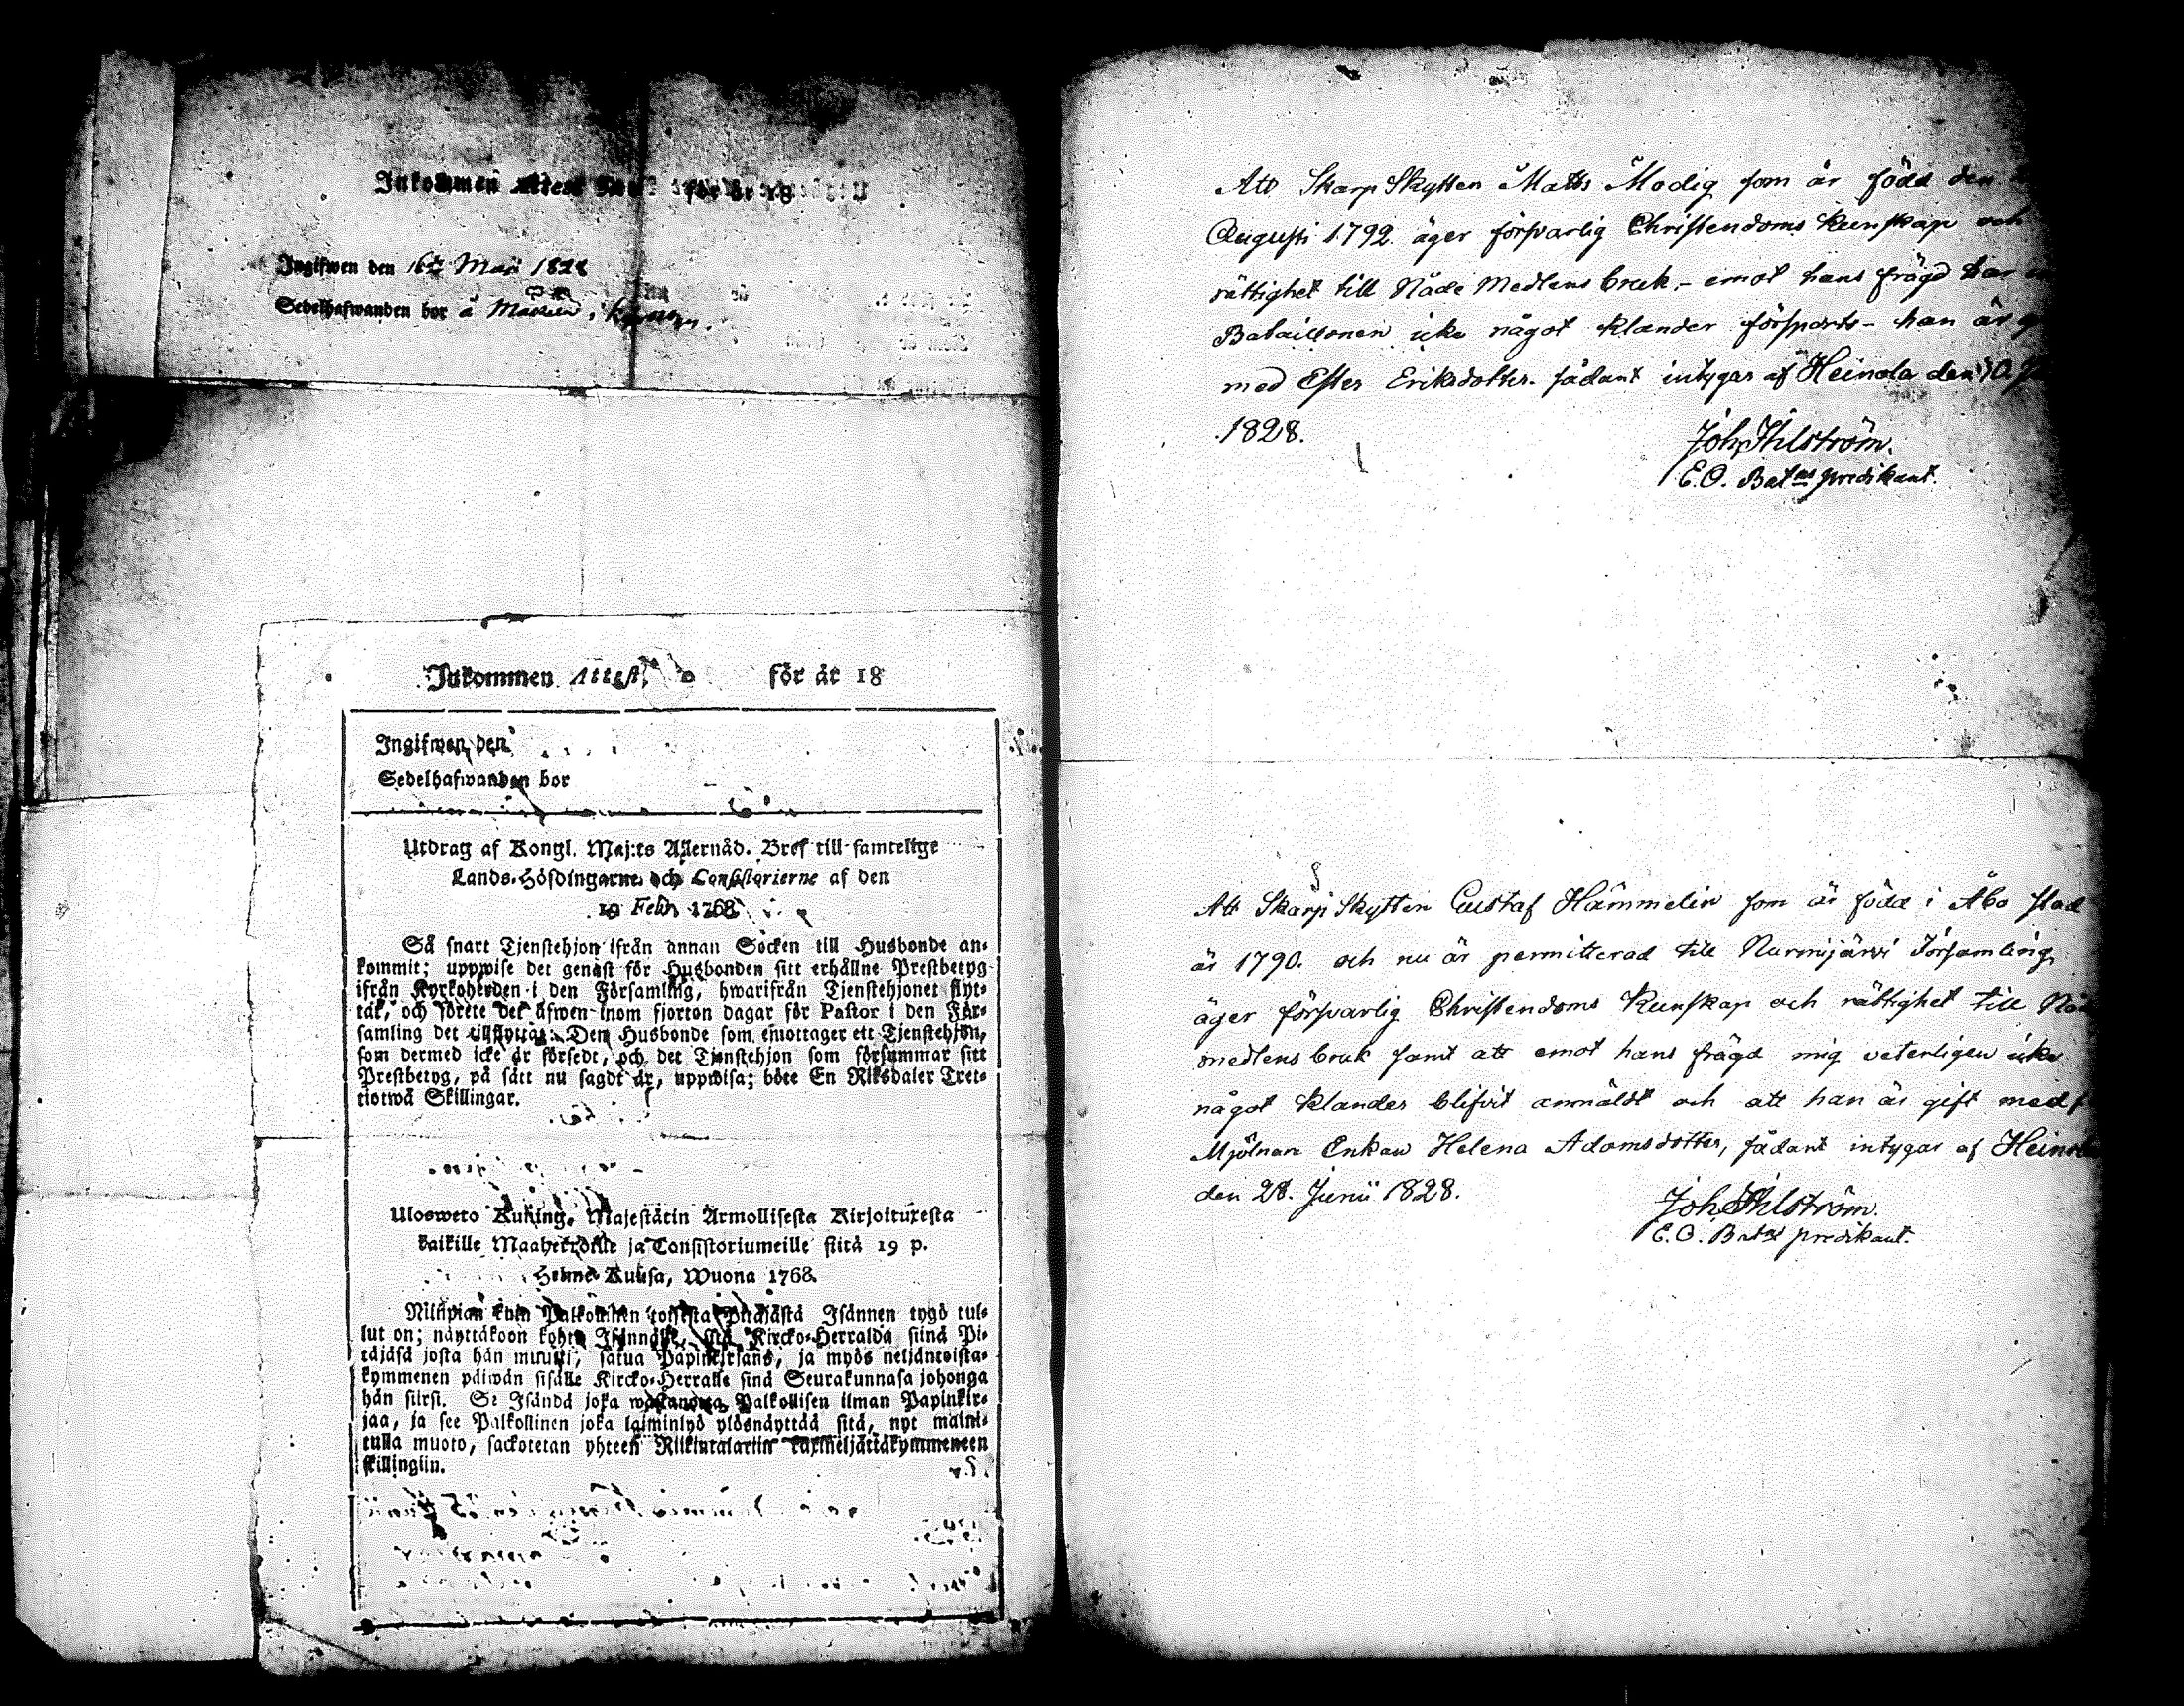 Inkommen Attest för år 18
Ingifwen den 16de Maji 1828
Sedelhafwanden bor å
Inkommen Attest, för år 18
Ingifwen den
Sedelhafwanden bor
Utdrag af Kongl. Maj:ts Allernåd. Bref till samtelige
Lands-Höfdingarne och Consistorierne af den
19 Febr. 1768.
Så snart Tjenstehjon ifrån annan Socken till Husbonde an-
kommit; uppwise det genast för Husbonden sitt erhållne Prestbetyg
ifrån Kyrkoherden i den Församling, hwarifrån Tjenstehjonet flyt-
tat, och förete det äfwen inom fjorton dagar för Pastor i den För-
samling det tillflyttar. Den Husbonde som emottager ett Tjenstehjon,
som dermed icke är försedt, och det Tjenstehjon som försummar sitt
Prestbetyg, på sätt nu sagdt är, uppwisa; böte En Riksdaler Tret-
tiotwå Skillingar.
Ulosweto Kuning. Majestätin Armollisesta Kirjoituxesta
kaikille Maaherroille ja Consistoriumeille siitä 19 p.
Helme Kuusa, Wuona 1768.
Niinpian kuin Palkollinen toisesta Pitäjästä Isännen tygö tul-
lut on; näyttäkoon kohta Isännälle, sitä Kircko-Herralda siinä Pi-
täjäsä josta hän muutti, saatua Papinkirjans, ja myös neljäntoista-
kymmenen päiwän sisälle Kircko-Herralle sinä Seurakunnasa johonga
hän siirsi. Se Isändä joka wastanotta Palkollisen ilman Papinkir-
jaa, ja see Palkollinen joka laiminlyö ylösnäyttää sitä, nyt maini-
tulla muoto, sackotetan yhteen Riikintalariin kaxineljättäkymmeneen
skillingiin.
Att Skarp Skytten Matts Modig som är född den
Augusti 1792. äger försvarlig Christendoms kunskap och
rättighet till Nåde Medlens bruk, - emot hans frägd har
Bataillonen icke något klander försports - han är
med Ester Eriksdotter. sådant intygar af Heinola den 10.
1828.
Joh Ihlström.
E. O. Batns predikant.
Att Skarp Skytten Gustaf Hämmelin som är född i Åbo stad
år 1790. och nu är permitterad till Nurmijärvi Församling,
äger försvarlig Christendoms Kunskap och rättighet till
medlens bruk samt att emot hans frägd mig veterligen icke
något klander blifvit anmäldt och att han är gift med
Mjölnare Enkan Helena Adamsdotter, sådant intygar af Heinola
den 28. Junii 1828.
Joh Ihlström.
E. O. Batns predikant.